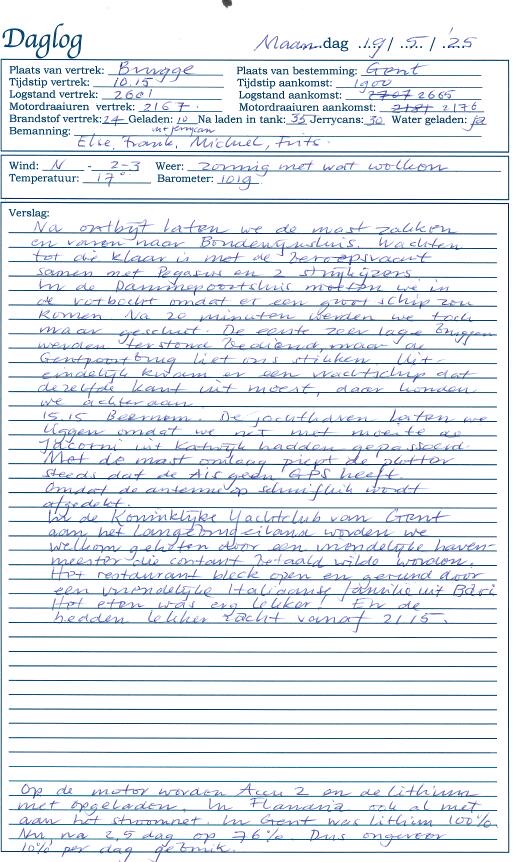 Daglog
Maandag 19 / 5 / '25
Plaats van vertrek: Brugge Plaats van bestemming: Gent
Tijdstip vertrek: 10.15 Tijdstip aankomst: 1900
Logstand vertrek: 2601 Logstand aankomst: 2707 2665
Motordraaiuren vertrek: 2167. Motordraaiuren aankomst: 2181 2176
Brandstof vertrek: 24 Geladen: 10 Na laden in tank: 35 Jerrycans: 30 Water geladen: ja
uit jerrycan
Bemanning: Else, Frank, Michiel, Frits.
Wind: N - 2-3 Weer: zonnig met wat wolken
Temperatuur: 17° Barometer: 1019
Verslag:
Na ontbijt laten we de mast zakken
en varen naar Wachten
tot die klaar is met de beroepsvaart
samen met Pegasus en 2 strijkijzers.
In de Dammepoortsluis moeten we in
de rotbocht omdat er een groot schip zou
komen. Na 20 minuten werden we toch
maar geschut. De eerste zeer lage bruggen
werden terstond bediend, maar de
Gentpoortbrug liet ons stikken. Uit-
eindelijk kwam er een vrachtschip dat
dezelfde kant uit moest, daar konden
we achteraan.
15.15 Beernem. De jachthaven laten we
liggen omdat we net met moeite de
uit Katwijk hadden gepasseerd.
Met de mast omlaag piept de plotter
steeds dat de Ais geen GPS heeft.
Omdat de antenne op wordt
afgedekt.
In de Koninklijke Yachtclub van Gent
aan het worden we
welkom geheten door een vriendelijke haven-
meester die contant betaald wilde worden.
Het restaurant bleek open en gerund door
een vriendelijke Italiaanse familie uit Bari
Het eten was erg lekker! En de
bedden lekker zacht vanaf 21.15.
Op de motor worden Accu 2 en de lithium
niet opgeladen. In Flandria ook al niet
aan het stroomnet. In Gent was lithium 100%.
Nu, na 2,5 dag op 76%. Dus ongeveer
10% per dag gebruik.